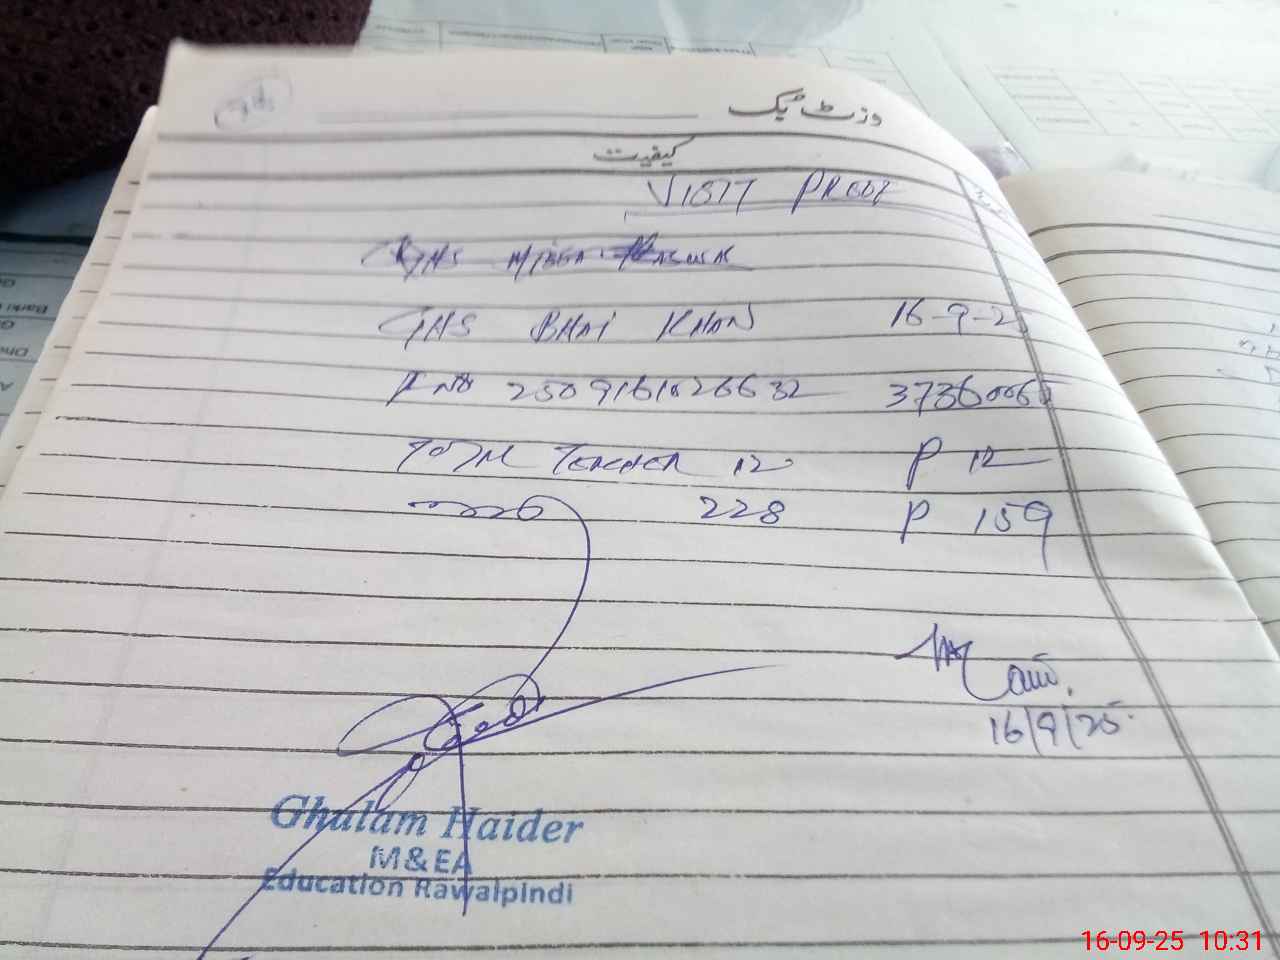 وزٹ بک
کیفیت
VISIT PROOF
GHS
GHS BHAI KHAN 16-9-25
P NO 2509161026632 37360065
TOTAL TEACHER 12 P 12
228 P 159
16/9/25
Ghulam Haider
M&EA
Education Rawalpindi
16-09-25 10:31